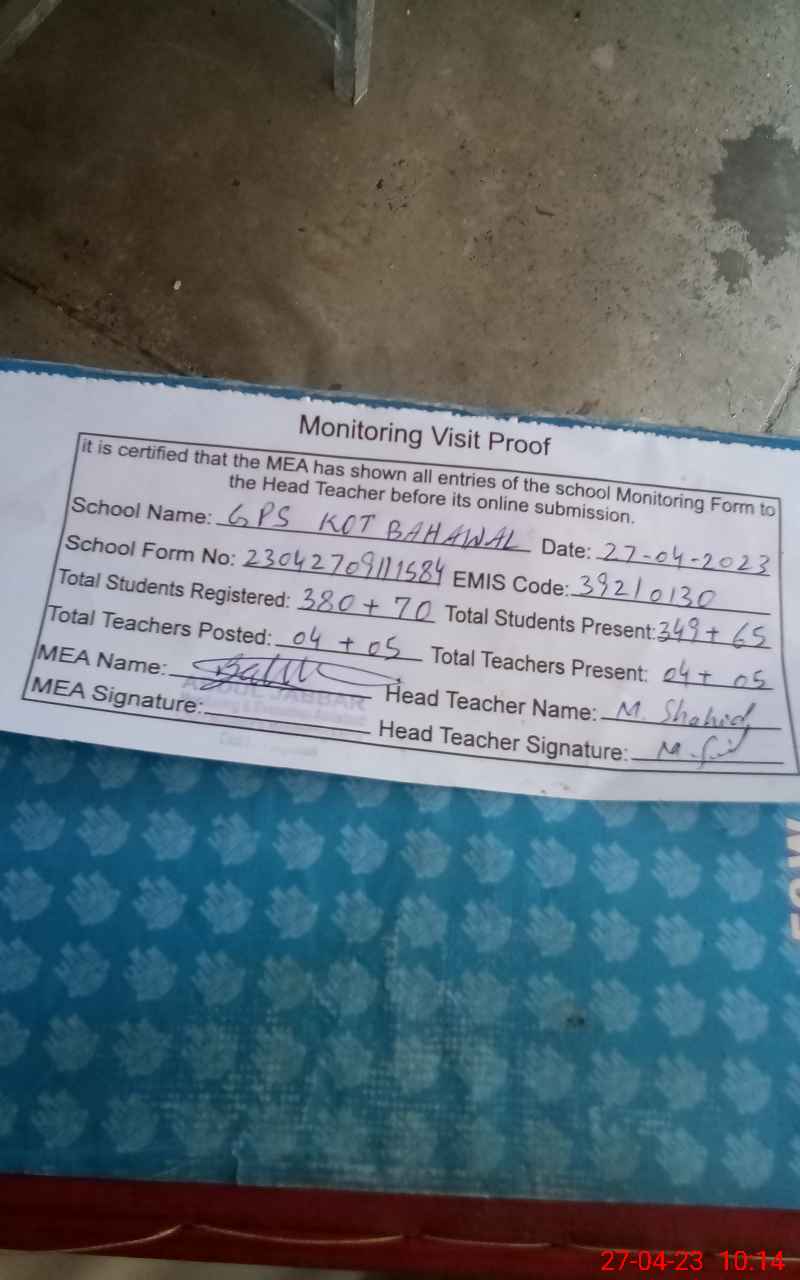 Monitoring Visit Proof
it is certified that the MEA has shown all entries of the school Monitoring Form to
the Head Teacher before its online submission.
School Name: GPS KOT BAHAWAL Date: 27-04-2023
School Form No: 23042709111584 EMIS Code: 39210130
Total Students Registered: 380 + 70 Total Students Present: 349 + 65
Total Teachers Posted: 04 + 05 Total Teachers Present: 04 + 05
MEA Name: Head Teacher Name: M. Shahid
ABDUL JABBAR
MEA Signature: Head Teacher Signature: M.
27-04-23 10:14